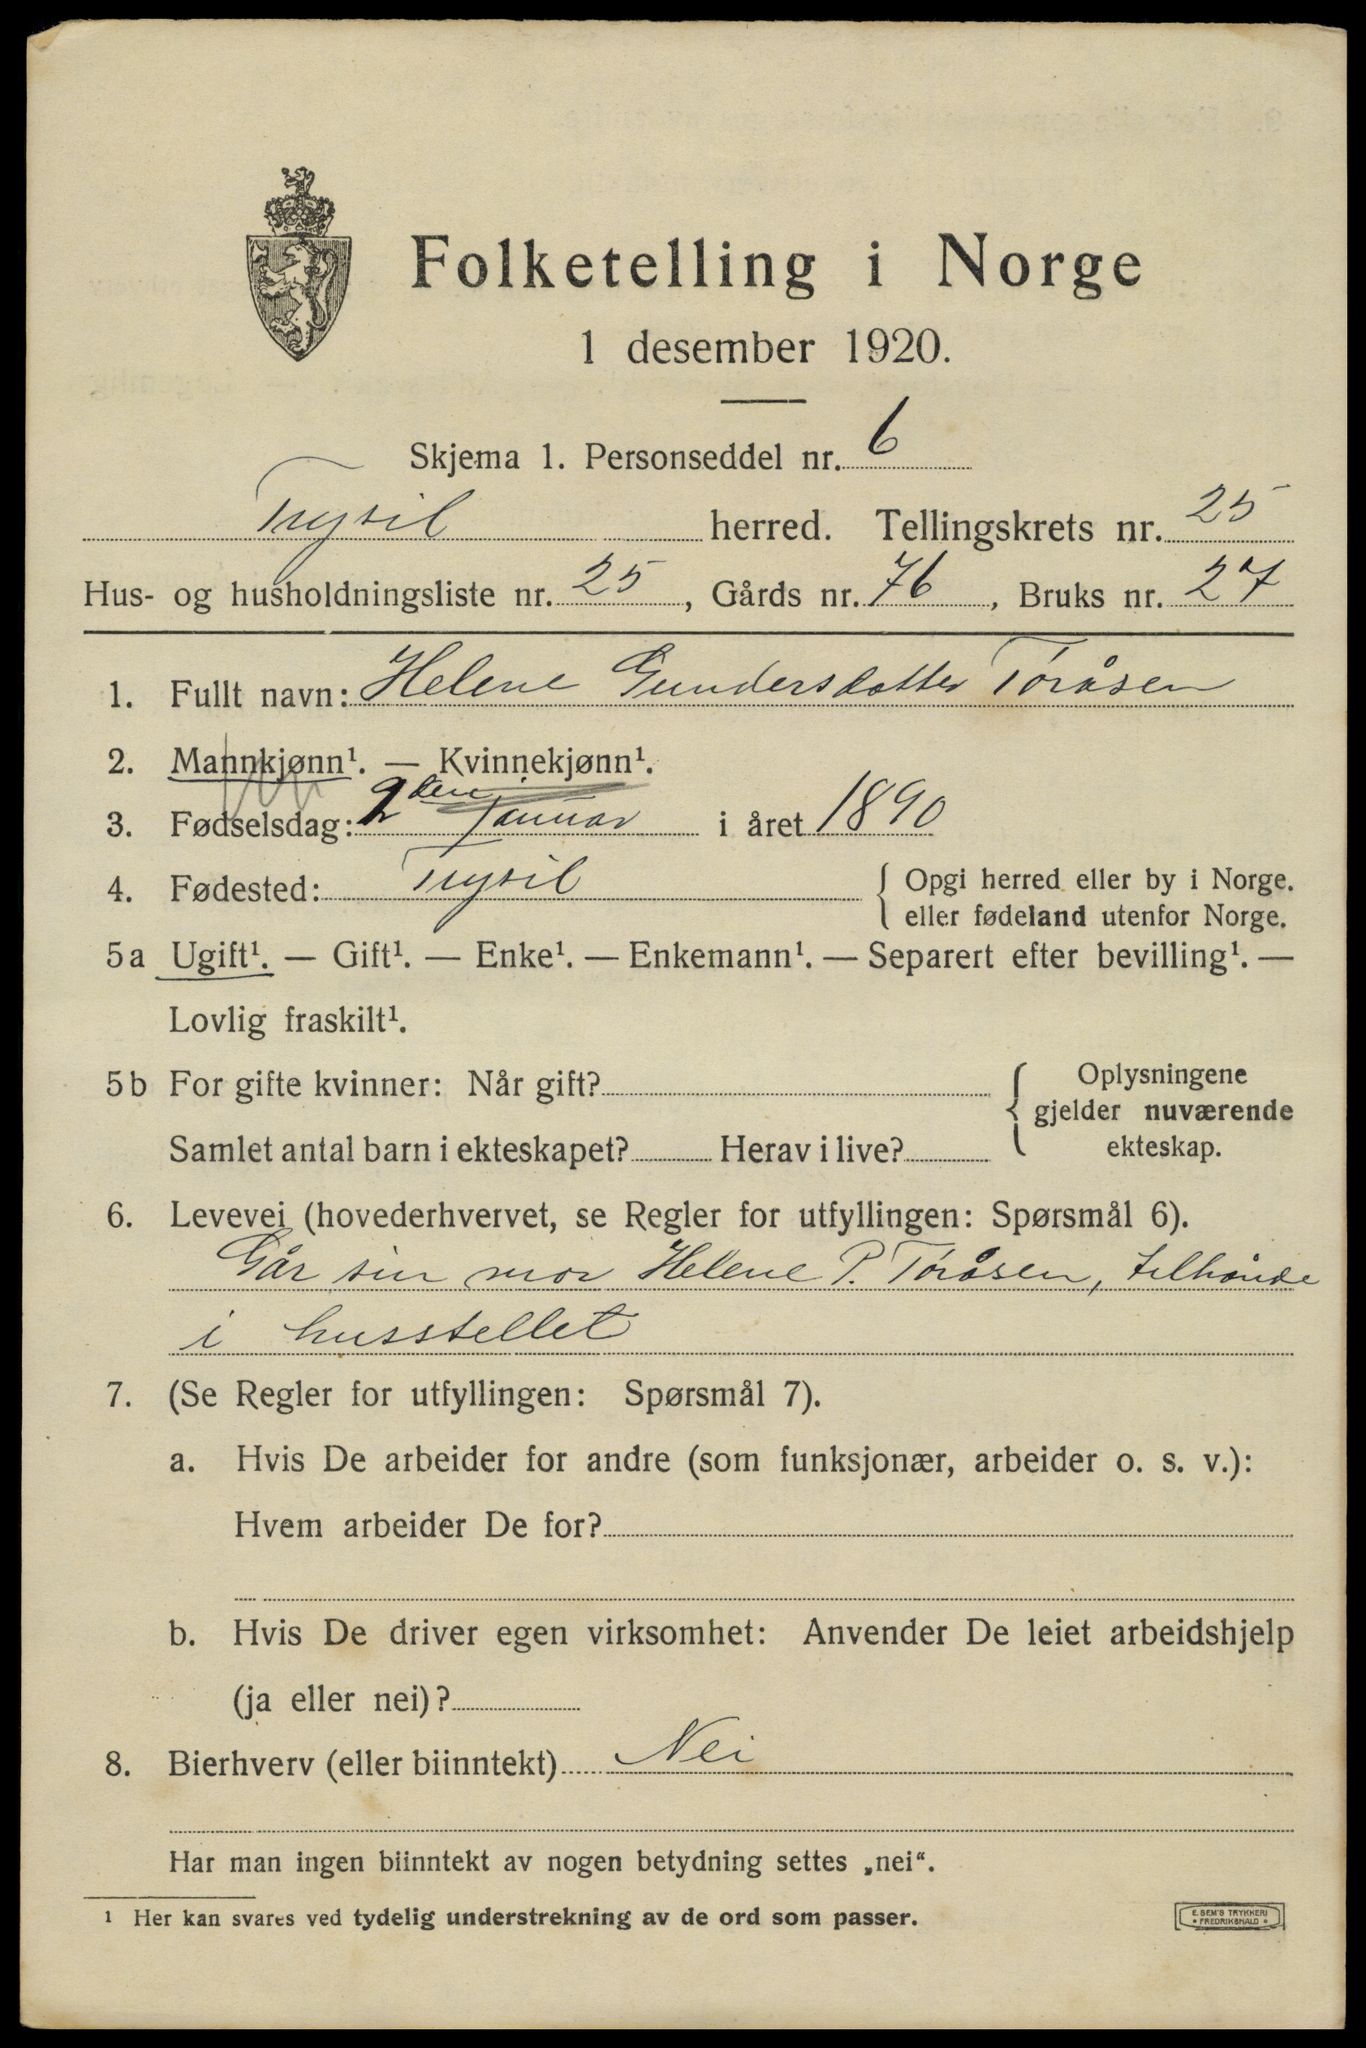 Folketelling i Norge
1 desember 1920.
Skjema 1. Personseddel nr. 6
Trysil herred. Tellingskrets nr. 25
Hus- og husholdningsliste nr. 25, Gårds nr. 76, Bruks nr. 27
1. Fullt navn: Helene Gundersdatter Toråsen
2. Mannkjønn¹. — Kvinnekjønn¹.
3. Fødselsdag: 2den Januar i året 1890
4. Fødested: Trysil { Opgi herred eller by i Norge.
eller fødeland utenfor Norge.
5a Ugift¹. — Gift¹. — Enke¹. — Enkemann¹. — Separert efter bevilling¹. —
Lovlig fraskilt¹.
5b For gifte kvinner: Når gift? { Oplysningene
gjelder nuværende
Samlet antal barn i ekteskapet? Herav i live? ekteskap.
6. Levevei (hovederhvervet, se Regler for utfyllingen: Spørsmål 6).
Går sin mor Helene P. Toråsen, tilhånde
i husstellet
7. (Se Regler for utfyllingen: Spørsmål 7).
a. Hvis De arbeider for andre (som funksjonær, arbeider o. s. v.):
Hvem arbeider De for?
b. Hvis De driver egen virksomhet: Anvender De leiet arbeidshjelp
(ja eller nei)?
8. Bierhverv (eller biinntekt) Nei
Har man ingen biinntekt av nogen betydning settes „nei“.
¹ Her kan svares ved tydelig understrekning av de ord som passer.
E. SEM'S TRYKKERI
• FREDRIKSHALD •